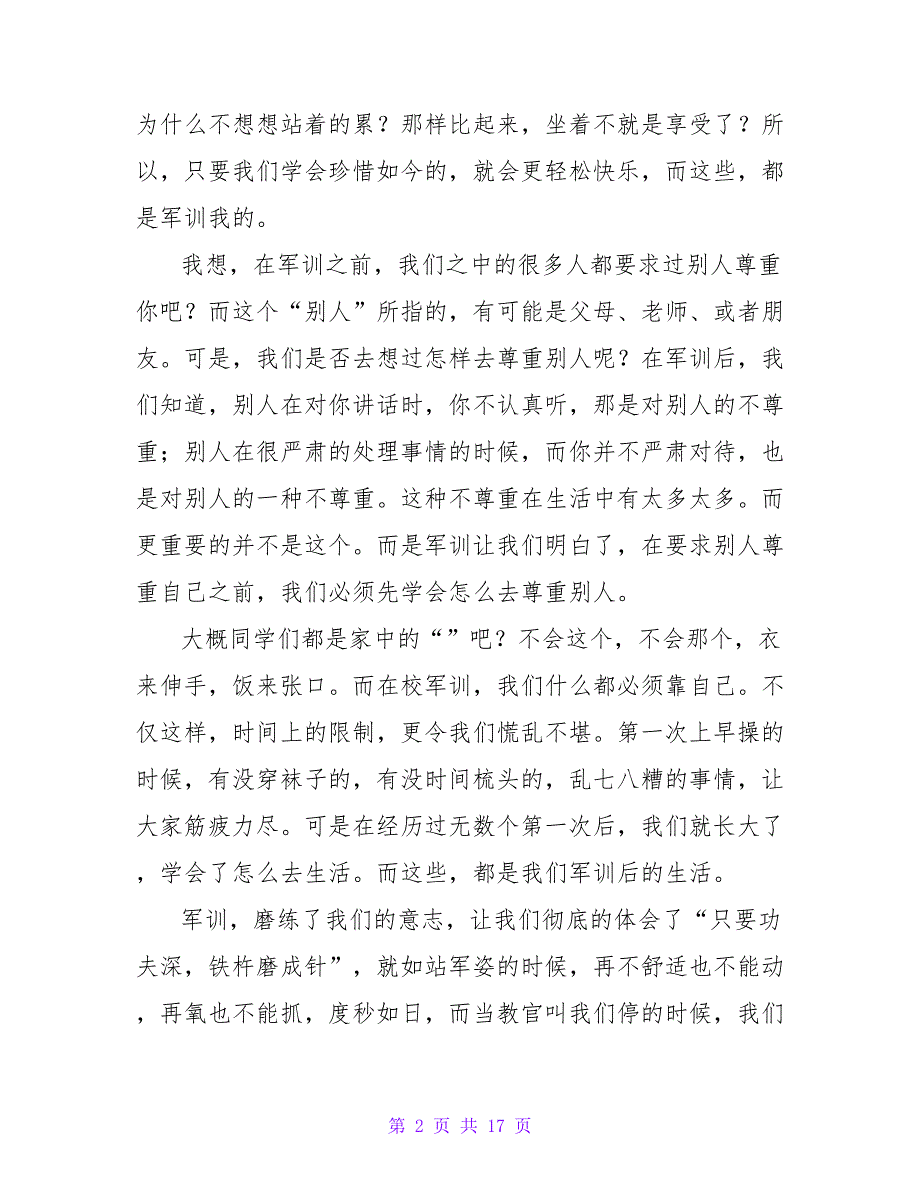 为什么不想想站着的累？那样比起来，坐着不就是享受了？所
以，只要我们学会珍惜如今的，就会更轻松快乐，而这些，都
是军训我的。
我想，在军训之前，我们之中的很多人都要求过别人尊重
你吧？而这个“别人”所指的，有可能是父母、老师、或者朋
友。可是，我们是否去想过怎样去尊重别人呢？在军训后，我
们知道，别人在对你讲话时，你不认真听，那是对别人的不尊
重；别人在很严肃的处理事情的时候，而你并不严肃对待，也
是对别人的一种不尊重。这种不尊重在生活中有太多太多。而
更重要的并不是这个。而是军训让我们明白了，在要求别人尊
重自己之前，我们必须先学会怎么去尊重别人。
大概同学们都是家中的“”吧？不会这个，不会那个，衣
来伸手，饭来张口。而在校军训，我们什么都必须靠自己。不
仅这样，时间上的限制，更令我们慌乱不堪。第一次上早操的
时候，有没穿袜子的，有没时间梳头的，乱七八糟的事情，让
大家筋疲力尽。可是在经历过无数个第一次后，我们就长大了
，学会了怎么去生活。而这些，都是我们军训后的生活。
军训，磨练了我们的意志，让我们彻底的体会了“只要功
夫深，铁杵磨成针”，就如站军姿的时候，再不舒适也不能动
，再氧也不能抓，度秒如日，而当教官叫我们停的时候，我们
第 2 页 共 17 页